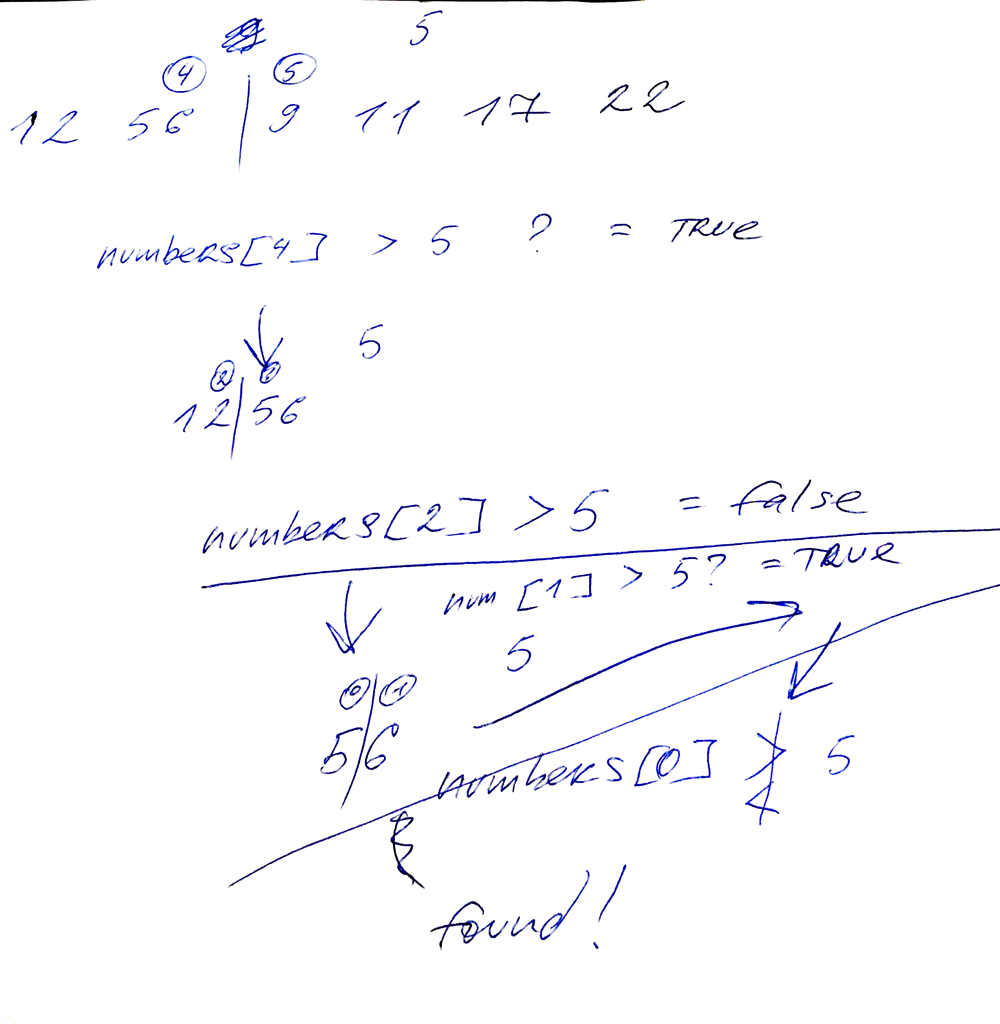 5
4 5
12 56 | 9 11 17 22
numbers[4] > 5 ? = TRUE
5
2
12|56
numbers[2] > 5 = false
num [1] > 5? = TRUE
5
0 1
5|6
numbers[0] > 5
found!